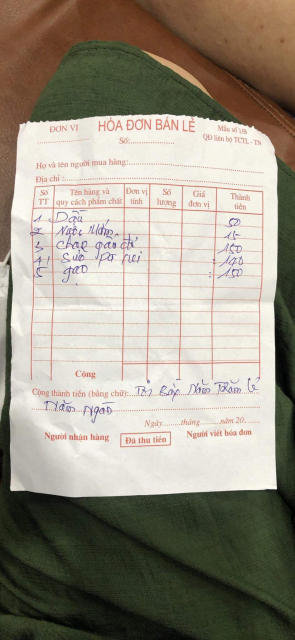 ĐƠN VỊ HÓA ĐƠN BÁN LẺ Mẫu số 1/B
Số: QĐ liên bộ TCTL - TN
Họ và tên người mua hàng:
Địa chỉ :
Số TT Tên hàng và quy cách phẩm chất Đơn vị tính Số lượng Giá đơn vị Thành tiền
1 Dầu 50
2 Ngọc 15
3 150
4 Sữa 120
5 gạo 150
Cộng
Cộng thành tiền (bằng chữ): Bốn Trăm
Ngàn
Ngày tháng năm 20
Người nhận hàng Đã thu tiền Người viết hóa đơn